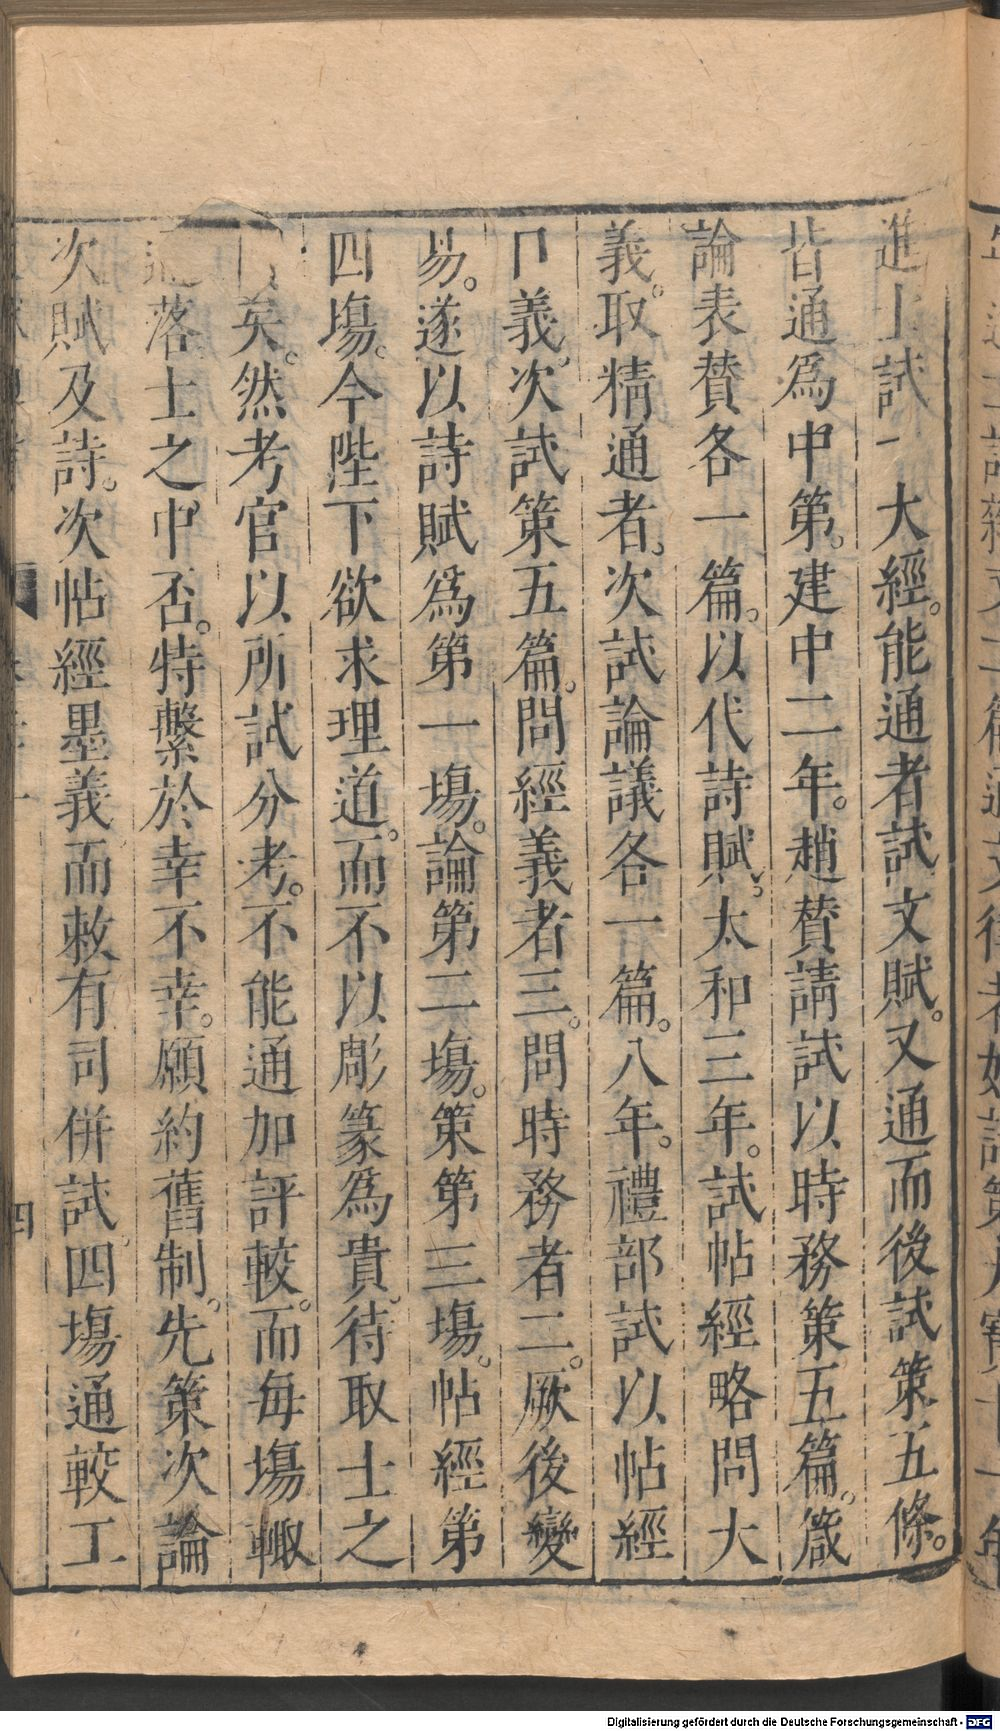 進士試一大經。能通者試文賦。又通而後試策五條。
皆通爲中第。建中二年。趙贊請試以時務策五篇。箴
論表贊各一篇。以代詩賦。太和三年。試帖經略問大
義。取精通者。次試論議各一篇。八年。禮部試以帖經
口義。次試策五篇。問經義者三。問時務者二。厥後變
易。遂以詩賦爲第一場。論第二場。策第三場。帖經第
四場。今陛下欲求理道。而不以彫篆爲貴。待取士之
矣。然考官以所試分考。不能通加評較。而每場輙
落士之中否。特繫於幸不幸。願約舊制。先策次論
次賦及詩。次帖經墨義而敕有司併試四場通較工
四
Digitalisierung gefördert durch die Deutsche Forschungsgemeinschaft - DFG